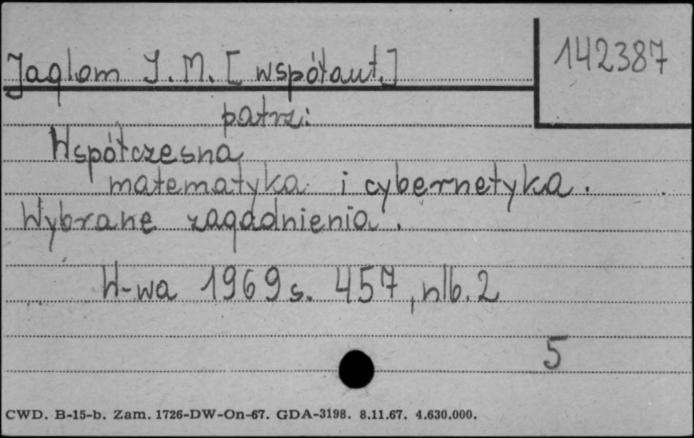 142387
Jaglom I. M. [współaut.]
patrz:
Współczesna
matematyka i cybernetyka.
Wybrane zagadnienia.
W-wa 1969 s. 457, nlb. 2
5
CWD. B-15-b. Zam. 1726-DW-On-67. GDA-3198. 8.11.67. 4.630.000.